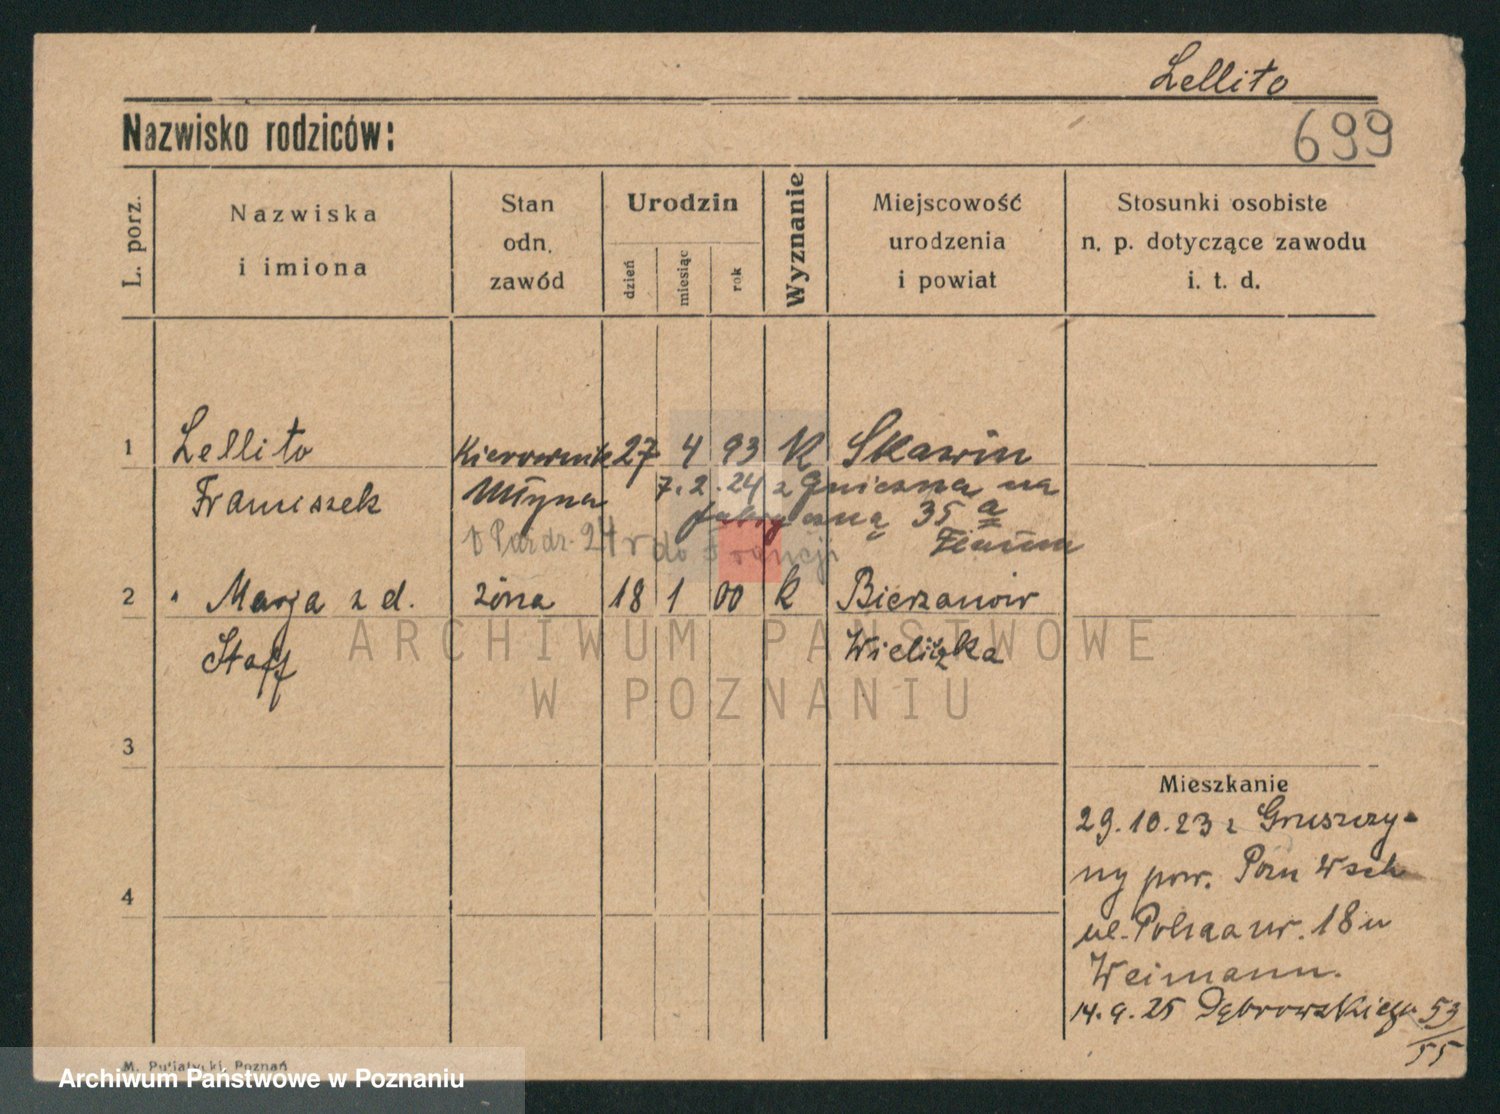 Lellito
Nazwisko rodziców:
699
L. porz.
Nazwiska
i imiona
Stan
odn.
zawód
Urodzin
dzień
miesiąc
rok
Wyznanie
Miejscowość
urodzenia
i powiat
Stosunki osobiste
n. p. dotyczące zawodu
i. t. d.
1 Lellito Kierownik 27 4 93 K Skawin
Franciszek Młyna 7.2.24 z Gniezna na
35 a
Paźdr. 24 r do Francji
2 " Marja z d. żona 18 1 00 k Bierzanow
Staff Wieliczka
ARCHIWUM PAŃSTWOWE
W POZNANIU
3
Mieszkanie
29.10.23 z Gruszczy-
ny pow. Pozn Wsch
4
ul. Polna nr. 18 u
Weimann.
14.9.25 Dąbrowskiego 53/55
M. Putiatycki, Poznań
Archiwum Państwowe w Poznaniu